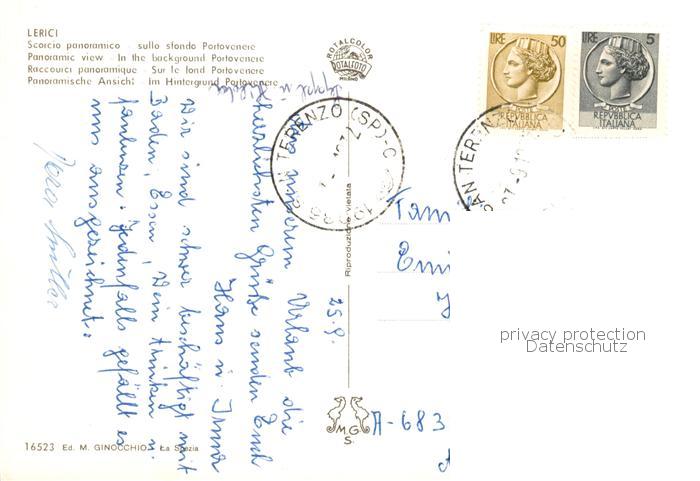 LERICI
Scorcio panoramico - sullo sfondo Portovenere
Panoramic view - In the background Portovenere
Raccourci panoramique - Sur le fond Portovenere
Panoramische Ansicht - Im Hintergrund Portovenere
ROTALCOLOR
ROTALFOTO
MILANO
LIRE 50
REPVBBLICA
ITALIANA
LIRE 5
REPVBBLICA
ITALIANA
SAN TERENZO (SP)-C
19036
SAN TEREN
25.9.
unserem Urlaub die
herzlichsten Grüße senden Euch
Hans u. Irma
Wir sind schwer beschäftigt mit
Baden, Essen, Wein trinken u.
faulenzen. Jedenfalls gefällt es
uns ausgezeichnet.
Riproduzione vietata
Fam
Emi
A-683
M.G.
S.
16523 Ed. M. GINOCCHIO - La Spezia
privacy protection
Datenschutz